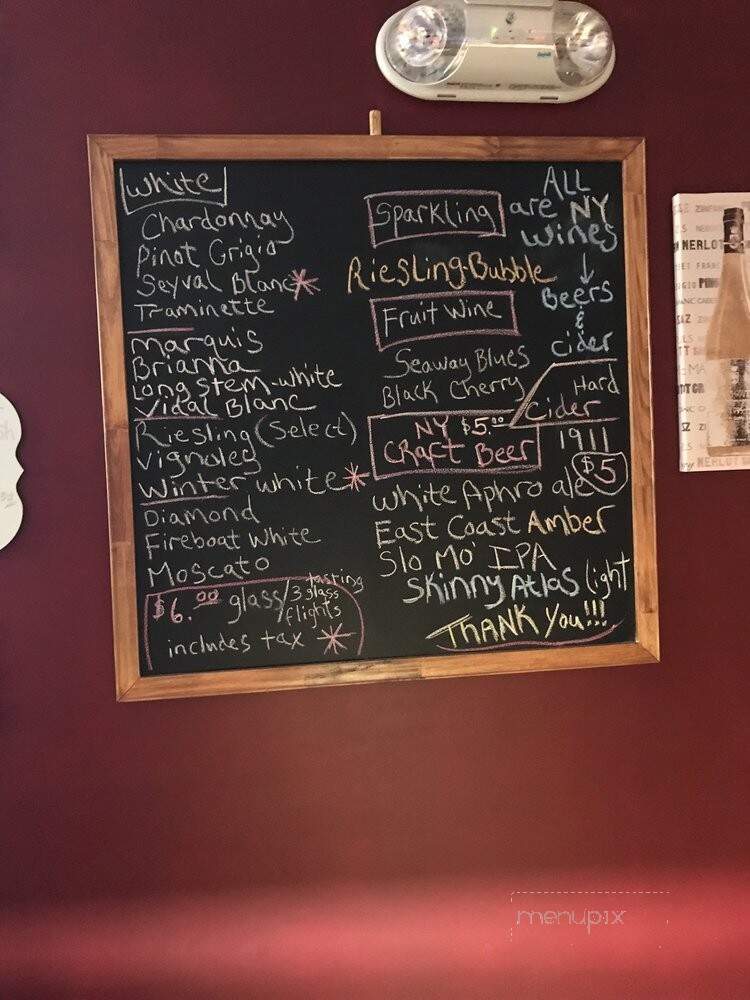 White
Chardonnay
Pinot Grigio
Seyval Blanc*
Traminette
Marquis
Brianna
Longstem-white
Vidal Blanc
Riesling (Select)
Vignoles
Winter white*
Diamond
Fireboat White
Moscato
$6.00 glass/3 glass tasting flights
includes tax *
ALL
are NY
wines
↓
Beers
&
cider
Sparkling
Riesling-Bubble
Fruit Wine
Seaway Blues
Black Cherry
Hard
Cider
1911
$5
NY $5.00
CRaft Beer
White Aphro ale
East Coast Amber
Slo Mo' IPA
Skinny Atlas Light
THANK You!!!
MERLOT
menupix